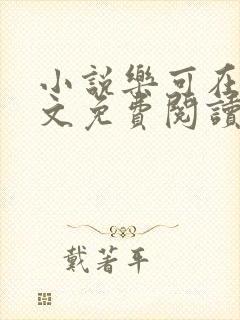 小說樂可在
文免費閱讀
戴著平